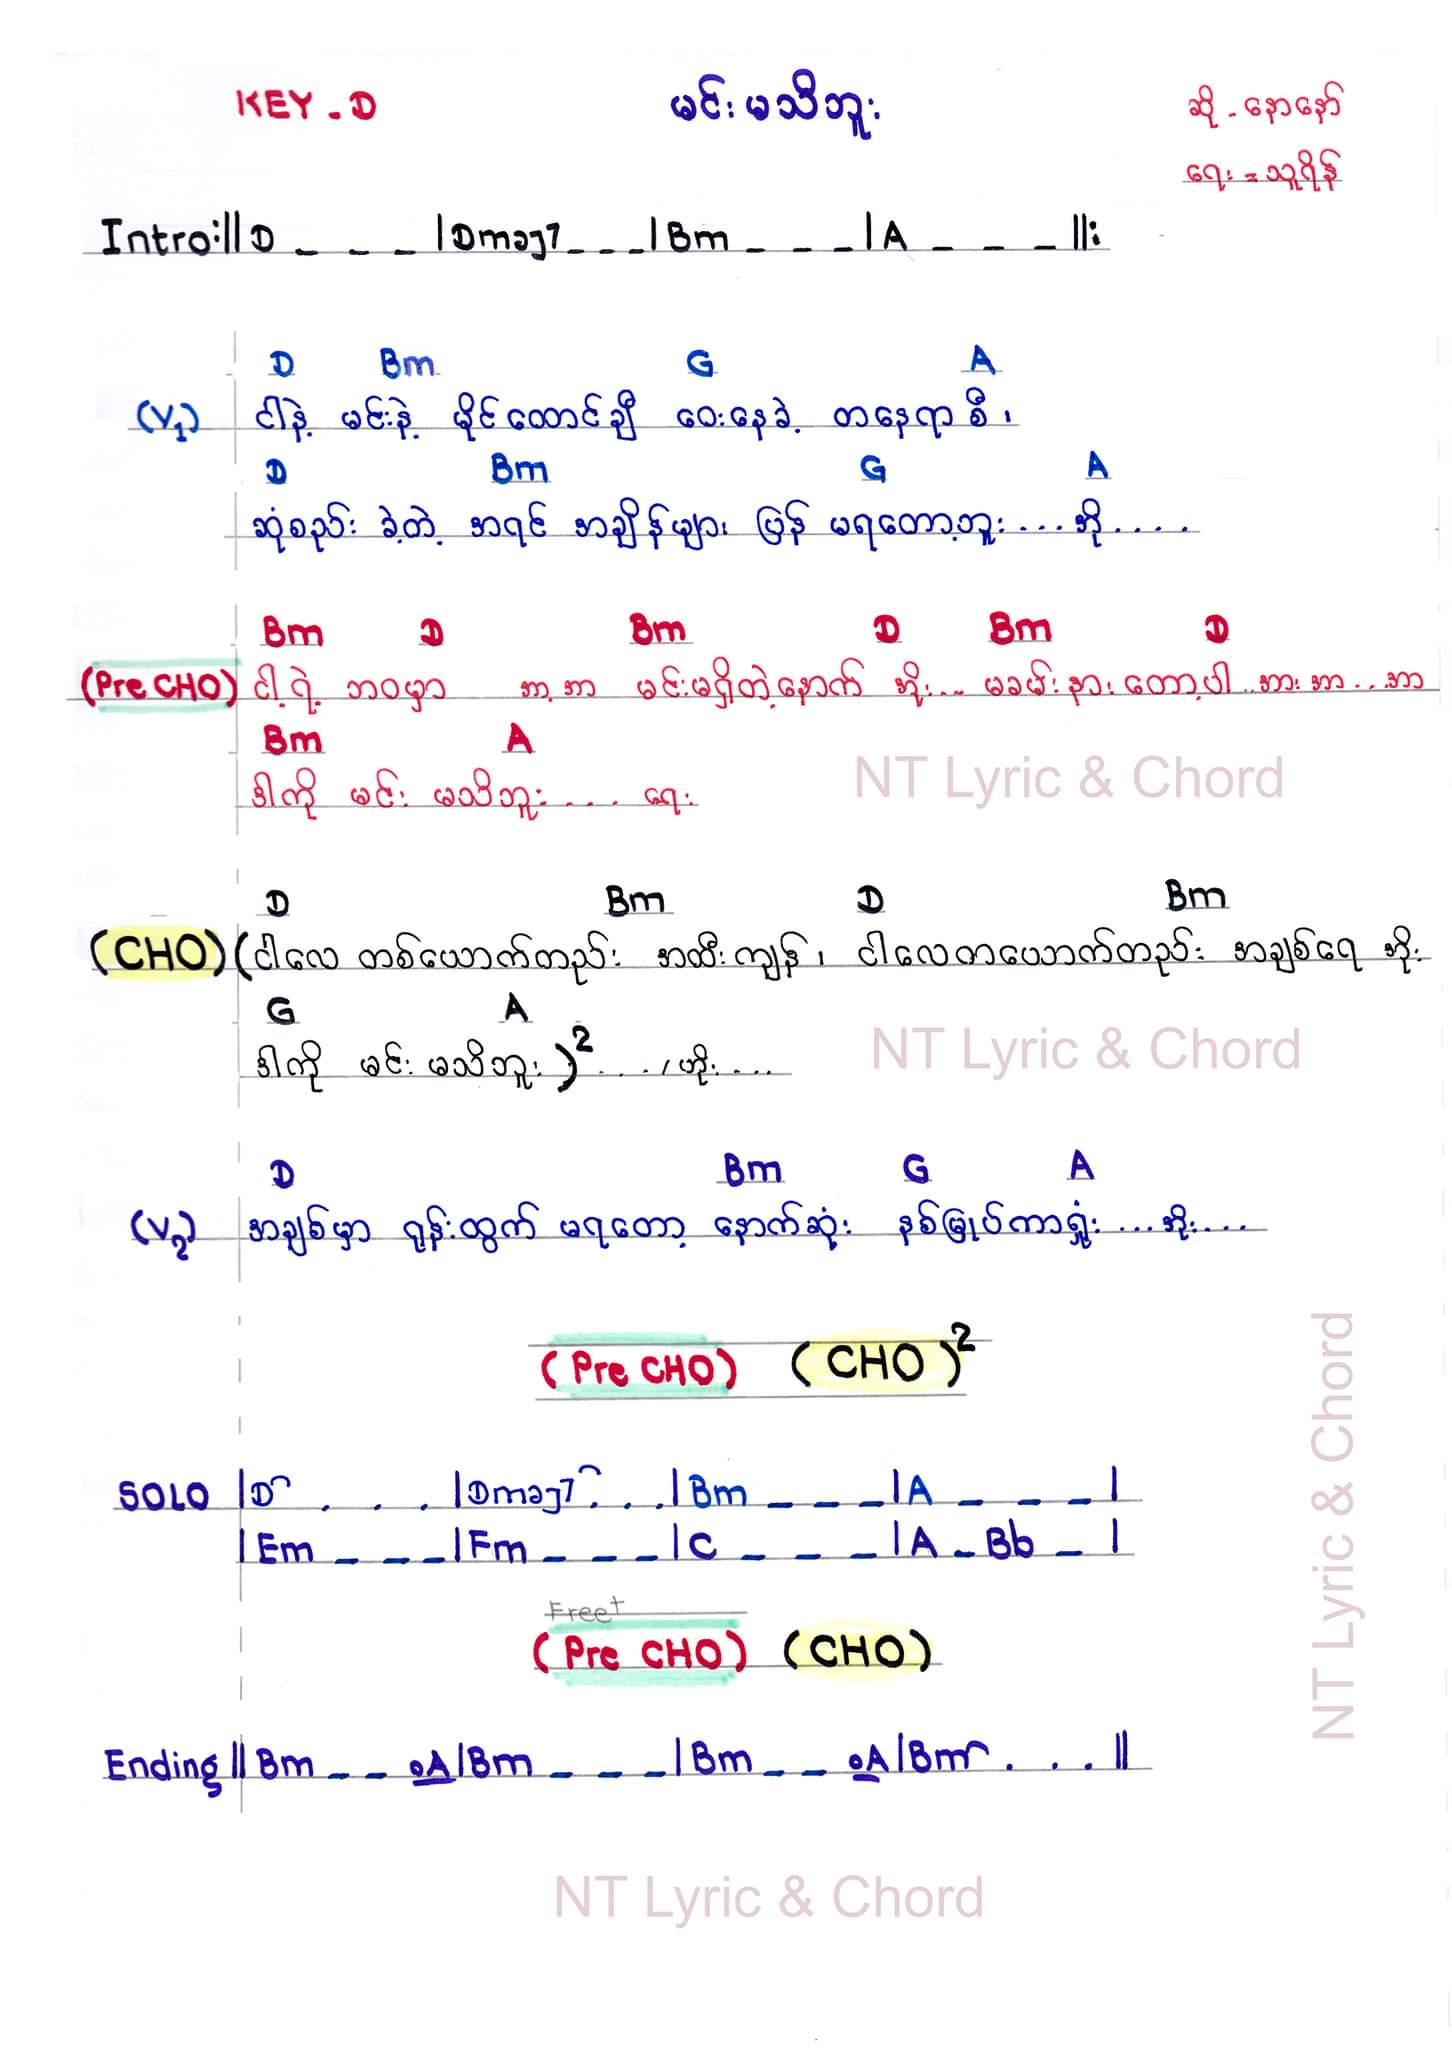 KEY - D မင်းမသိဘူး ဆို - နောနော်
ရေး = သူရိန်
Intro:|| D _ _ _ | Dmaj7 _ _ _ | Bm _ _ _ | A _ _ _ ||:
D Bm G A
(V1) ငါနဲ့ မင်းနဲ့ မိုင်ထောင်ချီ ဝေးနေခဲ့ တနေရာစီ၊
D Bm G A
ဆုံစည်း ခဲ့တဲ့ အရင် အချိန်များ ပြန် မရတော့ဘူး .... အို .....
Bm D Bm D Bm D
(Pre CHO) ငါ့ရဲ့ ဘဝမှာ အာ့အာ မင်းမရှိတဲ့နောက် အိုး... မခမ်းနားတော့ပါ ..အားအာ...အာ
Bm A
ဒါကို မင်း မသိဘူး .... ရေး
NT Lyric & Chord
D Bm D Bm
(CHO) (ငါလေ တစ်ယောက်တည်း အထီးကျန်၊ ငါလေတယောက်တည်း အချစ်ရေ အိုး
G A
ဒါကို မင်း မသိဘူး)2 ..../ဟိုး....
NT Lyric & Chord
D Bm G A
(V2) အချစ်မှာ ရုန်းထွက် မရတော့ နောက်ဆုံး နစ်မြုပ်ကာရှုံး ....အိုး....
(Pre CHO) (CHO)2
SOLO | D . . . | Dmaj7 . . . | Bm _ _ _ | A _ _ _ |
| Em _ _ _ | Fm _ _ _ | C _ _ _ | A _ Bb _ |
Free+
(Pre CHO) (CHO)
NT Lyric & Chord
Ending || Bm _ _ •A | Bm _ _ _ | Bm _ _ •A | Bm . . . ||
NT Lyric & Chord